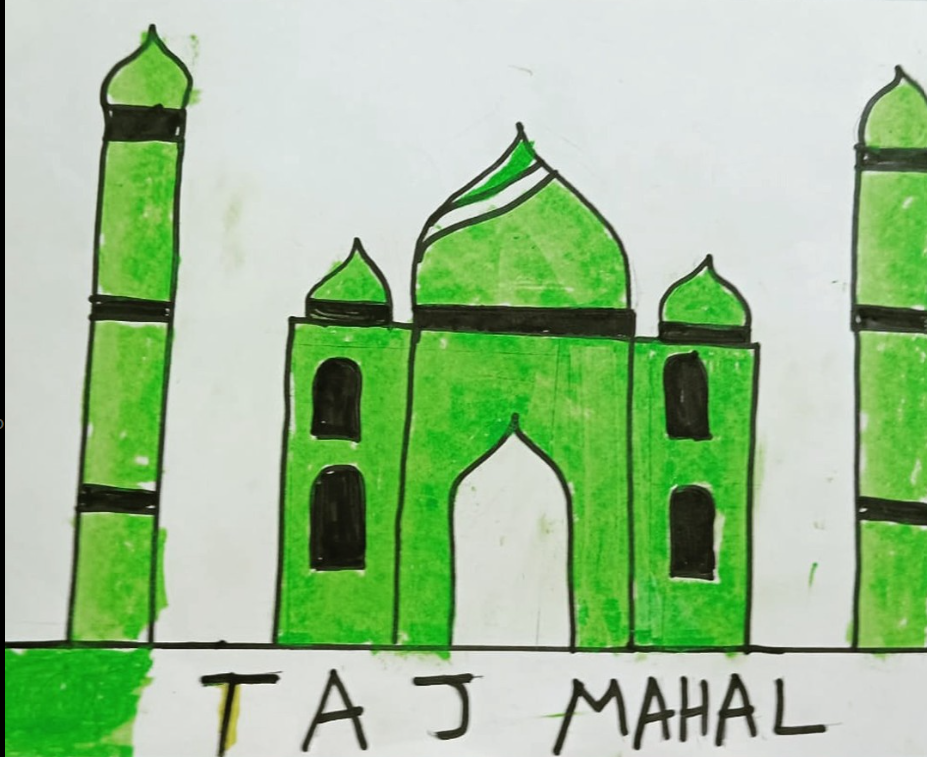 TAJ MAHAL